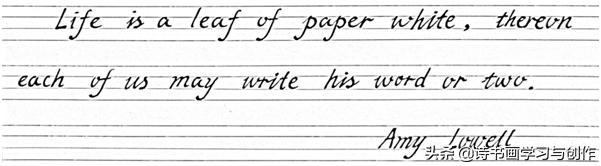 Life is a leaf of paper white, thereon
each of us may write his word or two.
Amy Lowell
头条 @诗书画学习与创作